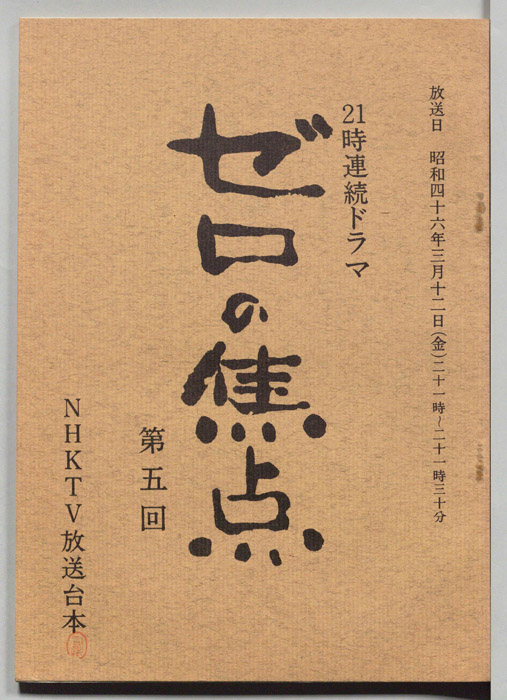 放送日　昭和四十六年三月十二日(金)二十一時～二十一時三十分
21時連続ドラマ
ゼロの焦点
第五回
NHKTV放送台本